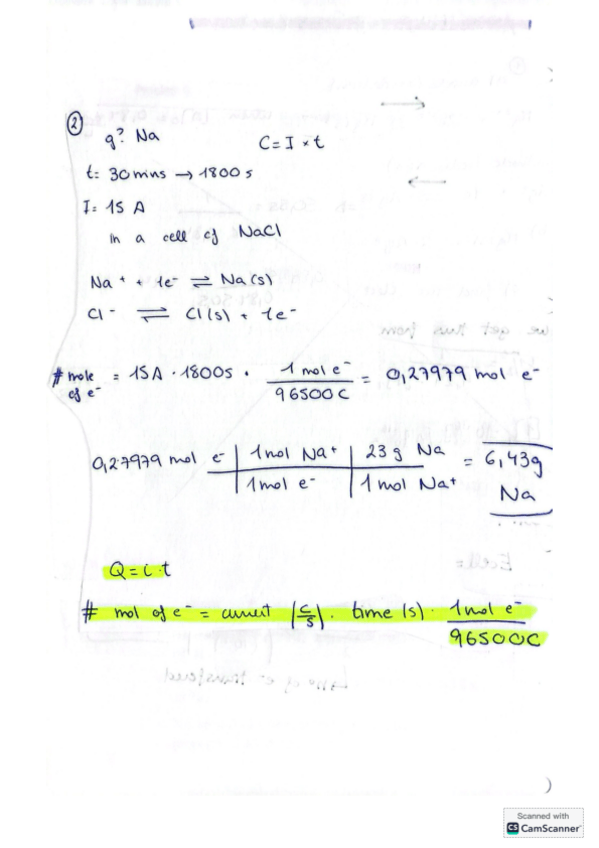 ②
g? Na C = I × t
t = 30 mins → 1800 s
I = 15 A
In a cell of NaCl
Na⁺ + 1e⁻ ⇌ Na(s)
Cl⁻ ⇌ Cl(s) + 1e⁻
# mole of e⁻ = 15A · 1800s · 1 mol e⁻ / 96500 C = 0,27979 mol e⁻
0,27979 mol e⁻ | 1 mol Na⁺ | 23 g Na = 6,43g
| 1 mol e⁻ | 1 mol Na⁺ Na
Q = i·t
# mol of e⁻ = current (C/s) · time (s) · 1 mol e⁻ / 96500C
)
Scanned with
CS CamScanner